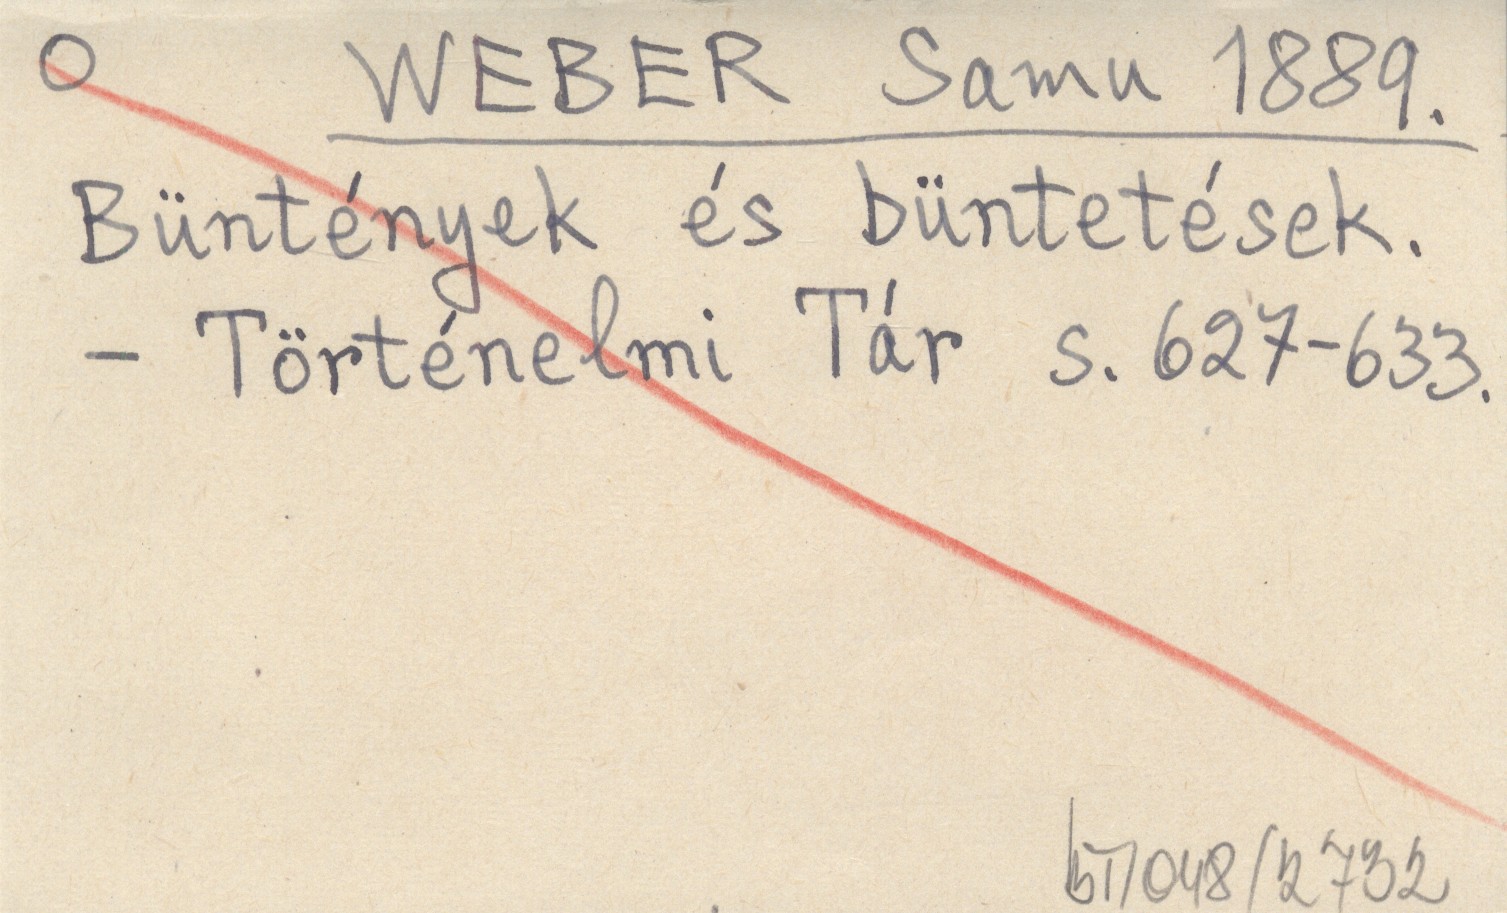 O WEBER Samu 1889.
Büntények és büntetések.
- Történelmi Tár s. 627-633.